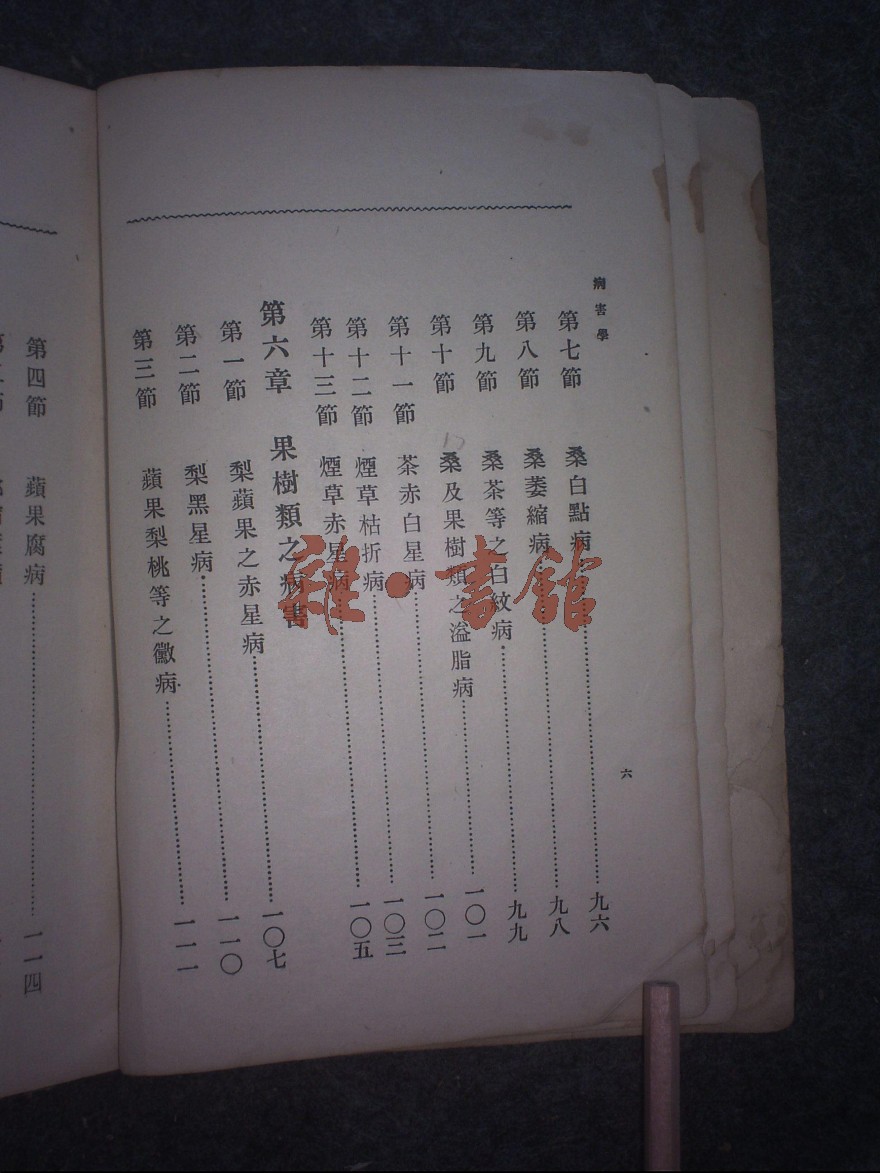 病害學
六
第七節 桑白點病 九六
第八節 桑萎縮病 九八
第九節 桑茶等之白紋病 九九
第十節 桑及果樹類之溢脂病 一〇一
第十一節 茶赤白星病 一〇二
第十二節 煙草枯折病 一〇三
第十三節 煙草赤星病 一〇五
第六章 果樹類之病害
第一節 梨蘋果之赤星病 一〇七
第二節 梨黑星病 一一〇
第三節 蘋果梨桃等之黴病 一一一
第四節 蘋果腐病 一一四
雜·書館